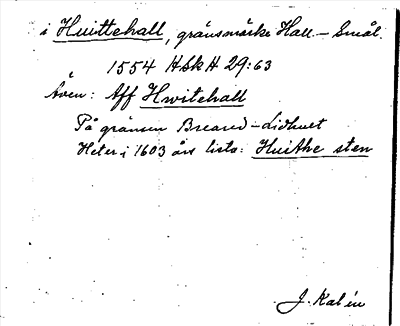 i Huittehall, gränsmärke Hall.– Smål.
1554 HSkH 29:63
Även: Aff Hwitehall
På gränsen Breared–Lidhult
Heter i 1603 års lista: Huithe sten
J. Kalén